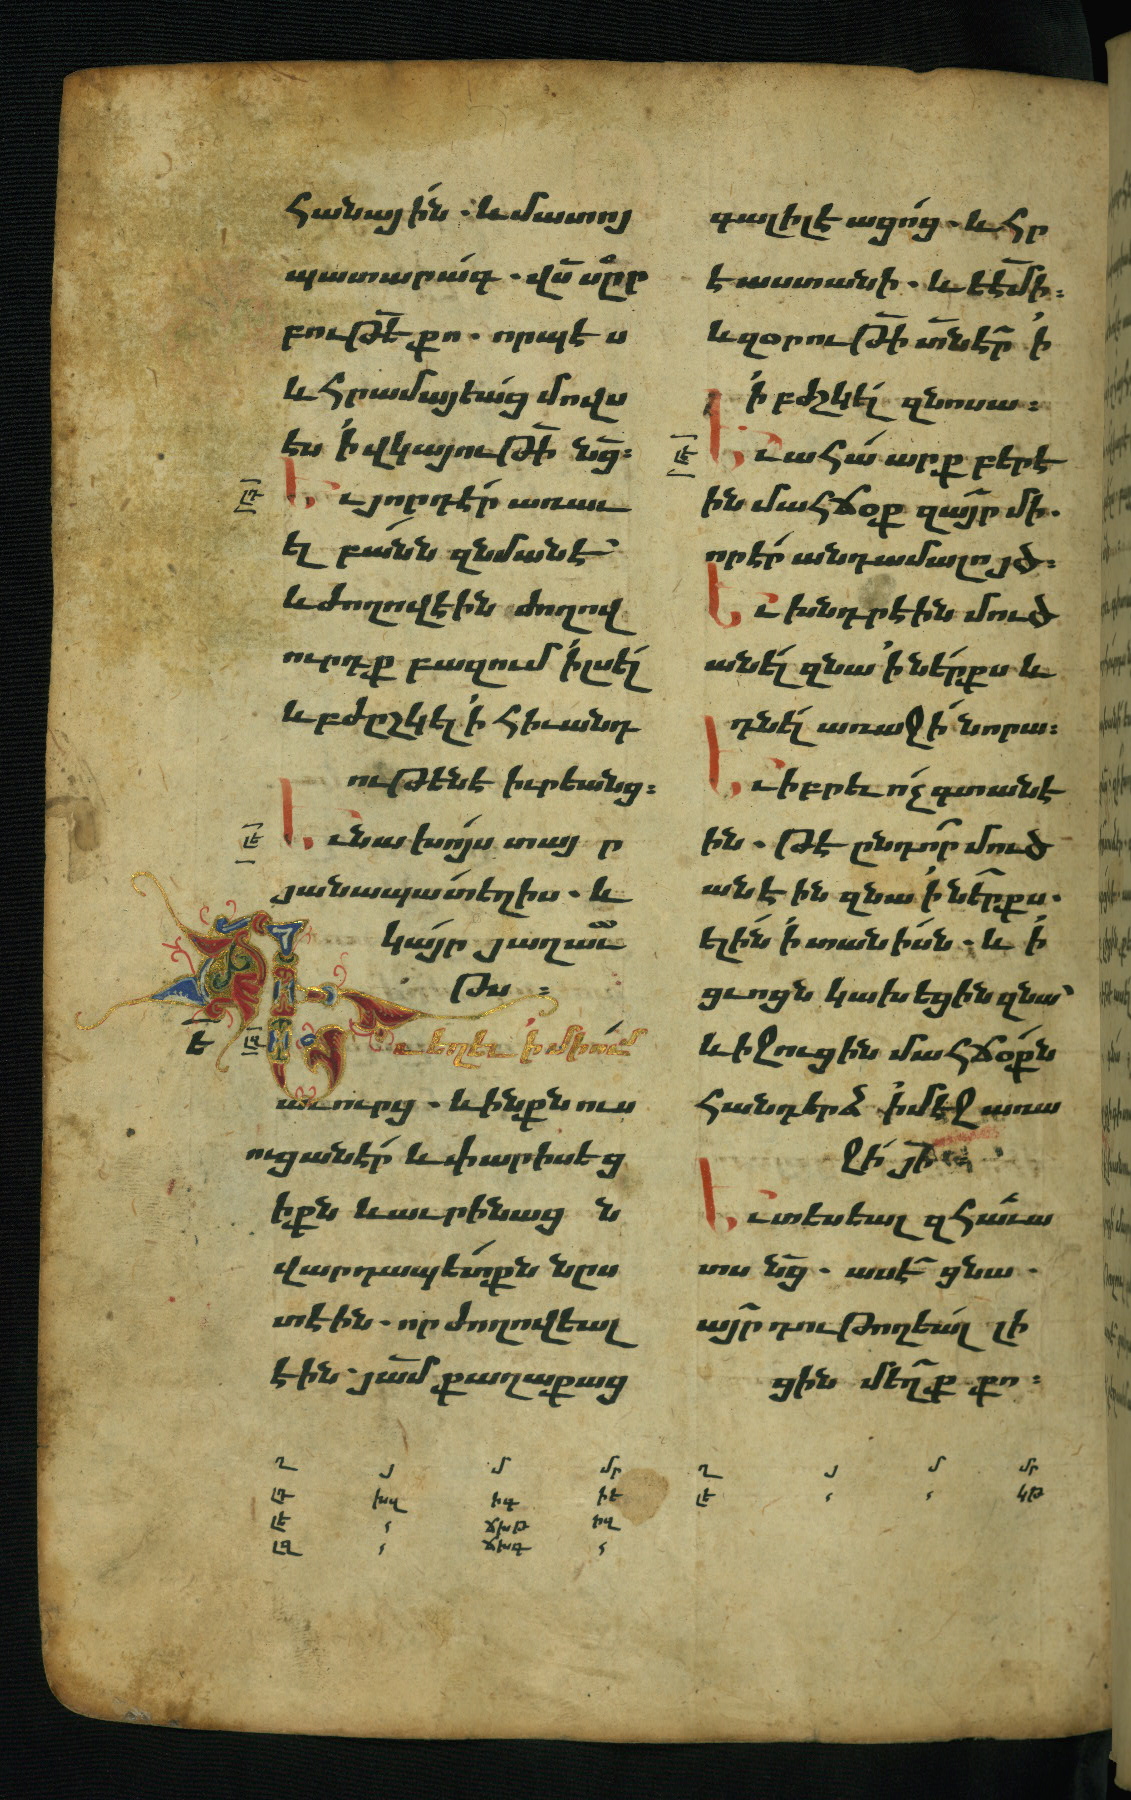 հանային. և մատո
պատարագ. վս սրբ
բութե քո. որպէս
և հրամայեաց մովս
ես ի վկայութի նց։
լդ
Եւ յորդէր առաւ
ել բանն զնմանէ՝
և ժողովէին ժողով
ուրդք բազում ի լսել
և բժըշկել ի հիւանդ
ութենէ իւրեանց։
լե
Եւ նա խոյս տայր
յանապատեղիս. և
կայր յաղաւ
թս։
ե լզ
Եւ եղև ի միում
աւուրց. և ինքն ուս
ուցանէր և փարիսեց
իքն և աւրինաց ն
վարդապետքն նըս
տէին. որ ժողովեալ
էին. յամ քաղաքաց
գալիլէացոց. և հր
էաստանի. և էէմի։
և զօրութի տներ ի
ի բժշկել զնոսա։
լէ
Եւ ահա արք բերէ
ին մահճօք զայր մի.
որ էր անդամալոյծ։
Եւ խնդրէին մուծ
անել զնա ի ներքս և
դնել առաջի նորա։
Եւ իբրև ոչ գտանէ
ին. թէ ընդոր մուծ
անէին զնա ի ներքս.
ելին ի տանիսն. և ի
ցւոցն կախեցին զնա՝
և իջուցին մահճօքն
հանդերձ ի մէջ առա
ջի յի։
Եւ տեսեալ զհաւա
տս նց. ասէ ցնա.
այր դու թողեալ լի
ցին մեղք քո։
ղ յ մ մր
լդ խվ իգ իէ
լե ՛ ճխթ իվ
լզ ՛ ճխգ ՛
ղ յ մ մր
լէ ՛ ՛ կթ